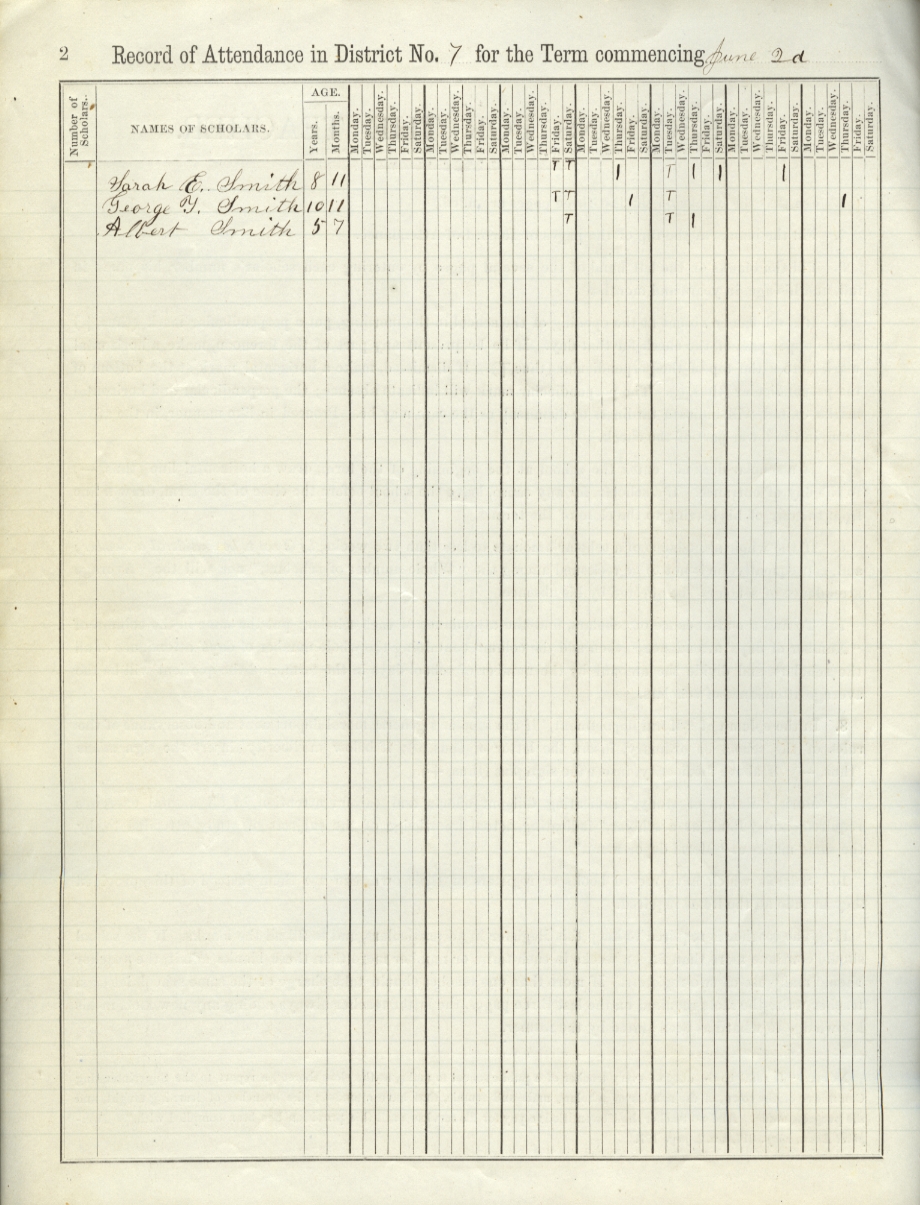 2 Record of Attendance in District No. 7 for the Term commencing June 2d
Number of Scholars. NAMES OF SCHOLARS. AGE.
Years. Months. Monday. Tuesday. Wednesday. Thursday. Friday. Saturday. Monday. Tuesday. Wednesday. Thursday. Friday. Saturday. Monday. Tuesday. Wednesday. Thursday. Friday. Saturday. Monday. Tuesday. Wednesday. Thursday. Friday. Saturday. Monday. Tuesday. Wednesday. Thursday. Friday. Saturday. Monday. Tuesday. Wednesday. Thursday. Friday. Saturday. Monday. Tuesday. Wednesday. Thursday. Friday. Saturday.
Sarah E. Smith 8 11 T T 1 T 1 1 1
George Y. Smith 10 11 T T 1 T 1
Albert Smith 5 7 T T 1